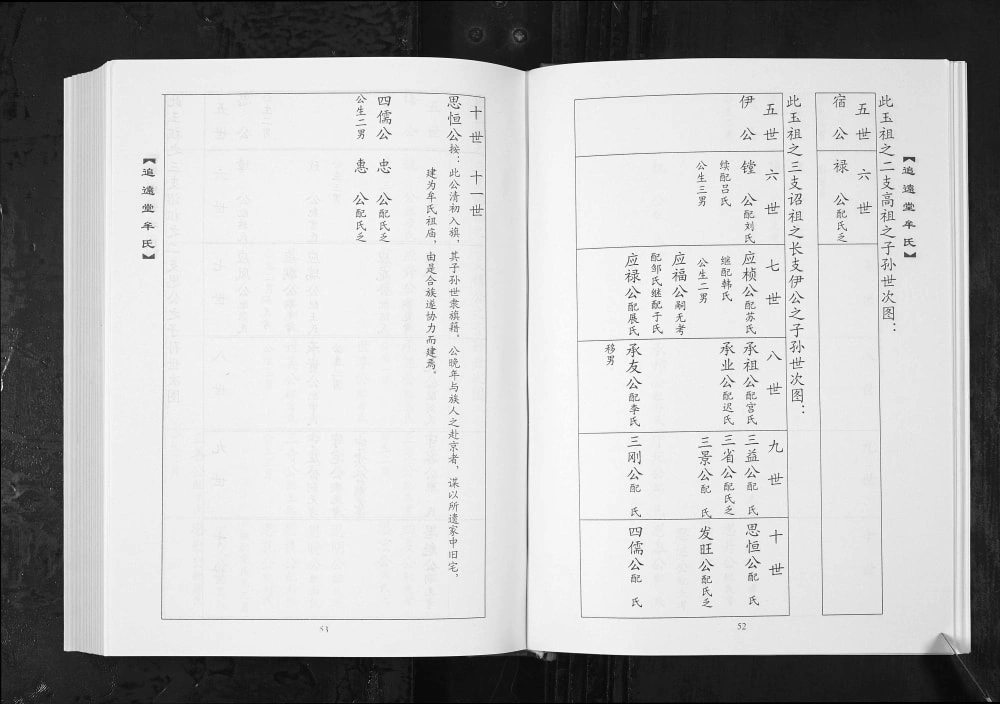 【追遠堂牟氏】
此玉祖之二支高祖之子孙世次图：
五世 六世
宿公 禄公配氏乏
此玉祖之三支诏祖之长支伊公之子孙世次图：
五世 六世 七世 八世 九世 十世
伊公 镗公配刘氏 应桢公配苏氏 承祖公配宫氏 三益公配 氏 思恒公配 氏
续配吕氏 继配韩氏 承业公配迟氏 三省公配氏乏
公生三男 公生二男 三景公配 氏 发旺公配氏乏
应福公嗣无考
配邹氏继配于氏
应禄公配展氏 承友公配李氏 三刚公配 氏 四儒公配 氏
移男
52
十世 十一世
思恒公按：此公清初入旗，其子孙世隶旗籍。公晚年与族人之赴京者，谋以所遗家中旧宅，
建为牟氏祖庙，由是合族遂协力而建焉。
四儒公 忠公配氏乏
公生二男 惠公配氏乏
【追遠堂牟氏】
53